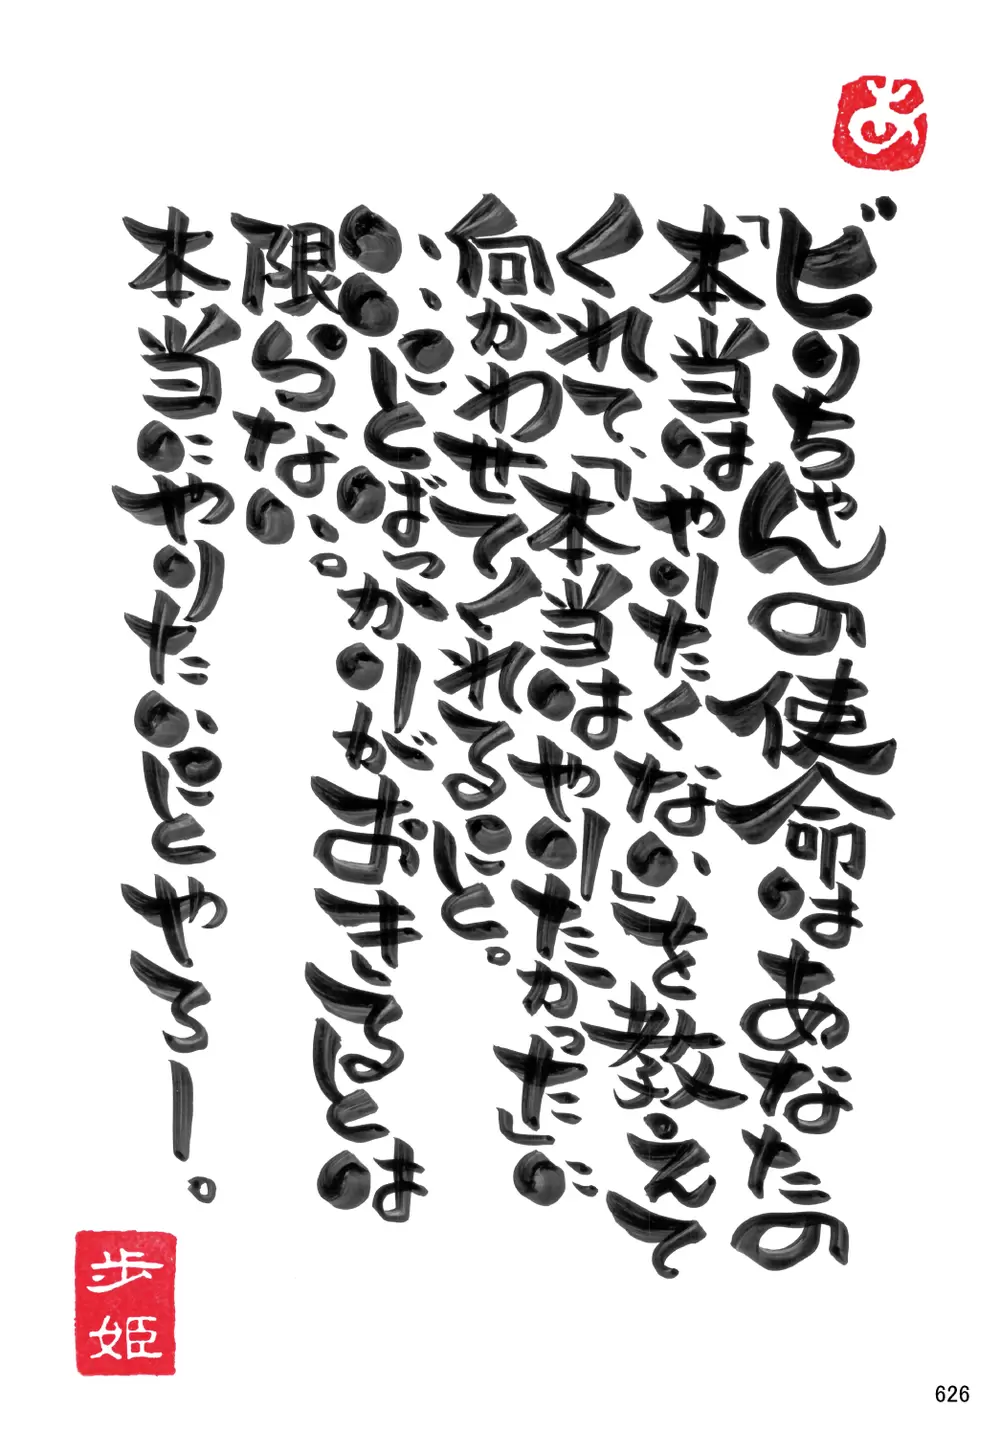 あ
ビりちゃんの使命はあなたの
「本当はやりたくない」を教えて
くれて、「本当はやりたかった」に
向かわせてくれること。
いいことばっかりがおきるとは
限らない。
本当にやりたいことやろー。
歩姫
626